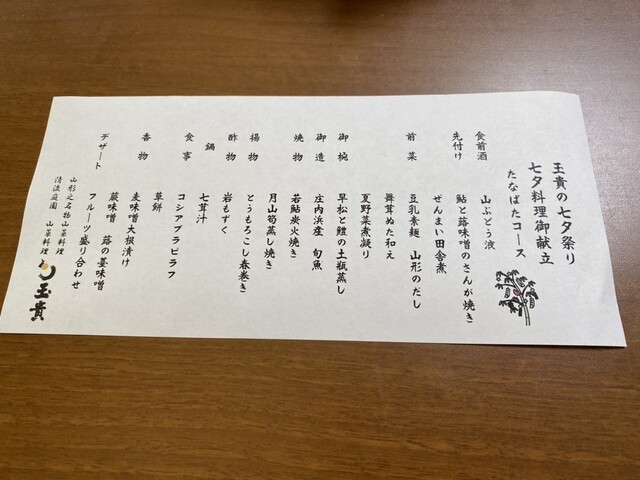 玉貴の七夕祭り
七夕料理御献立
たなばたコース
食前酒 山ぶどう液
先付け 鮎と蕗味噌のさんが焼き
ぜんまい田舎煮
前菜 豆乳素麺 山形のだし
舞茸ぬた和え
夏野菜煮凝り
御椀 早松と鱧の土瓶蒸し
御造 庄内浜産 旬魚
焼物 若鮎炭火焼き
月山筍蒸し焼き
揚物 とうもろこし春巻き
酢物 岩もずく
鍋 七茸汁
食事 コシアブラピラフ
草餅
香物 麦味噌大根漬け
蔵味噌 蕗の薹味噌
デザート フルーツ盛り合わせ
山形之名物山菜料理
清流庭園 山菜料理 玉貴